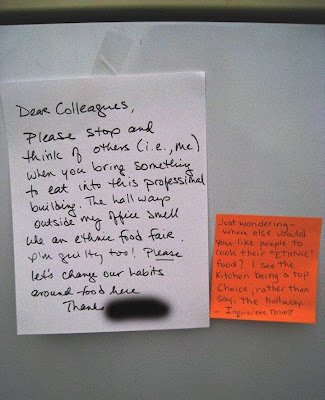 Dear Colleagues,
Please stop and
think of others (i.e., me)
when you bring something
to eat into this professional
building. The hallways
outside my office smell
like an ethnic food fair.
I'm guilty too! Please
let's change our habits
around food here
Thanks
Just wondering -
where else would
you like people to
cook their "ETHNIC"
food? I see the
Kitchen being a top
choice, rather than
say, the hallway.
- Inquisitive Tenant